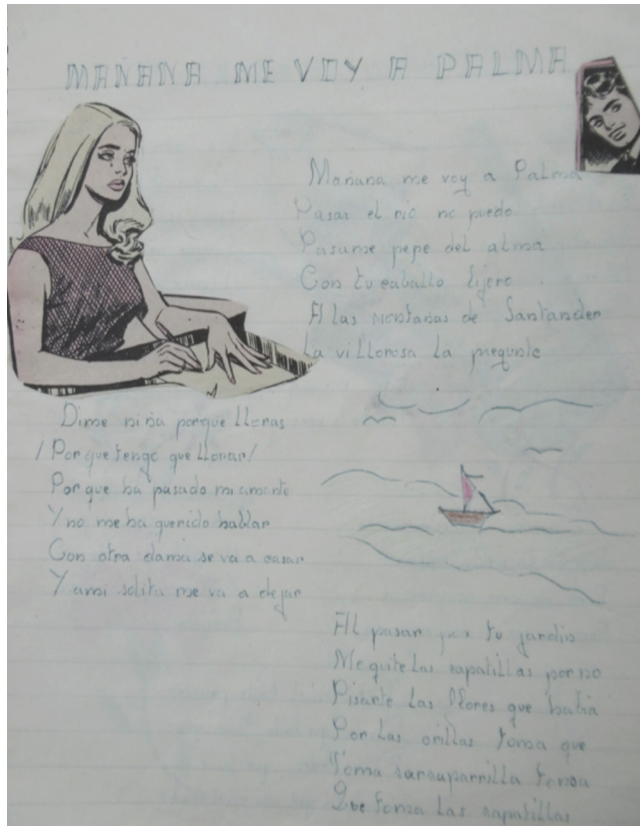 MAÑANA ME VOY A PALMA
Mañana me voy a Palma
Pasar el rio no puedo
Pasame pepe del alma
Con tu caballo lijero
A las montañas de Santander
La vi llorosa la pregunte
Dime niña porque lloras
¡Porque tengo que llorar!
Porque ha pasado mi amante
Y no me ha querido hablar
Con otra dama se va a casar
Y ami solita me va a dejar
Al pasar por tu jardin
Me quite las zapatillas por no
Pisarte las flores que habia
Por las orillas toma que
Toma zarzaparrilla toma
Que toma las zapatillas